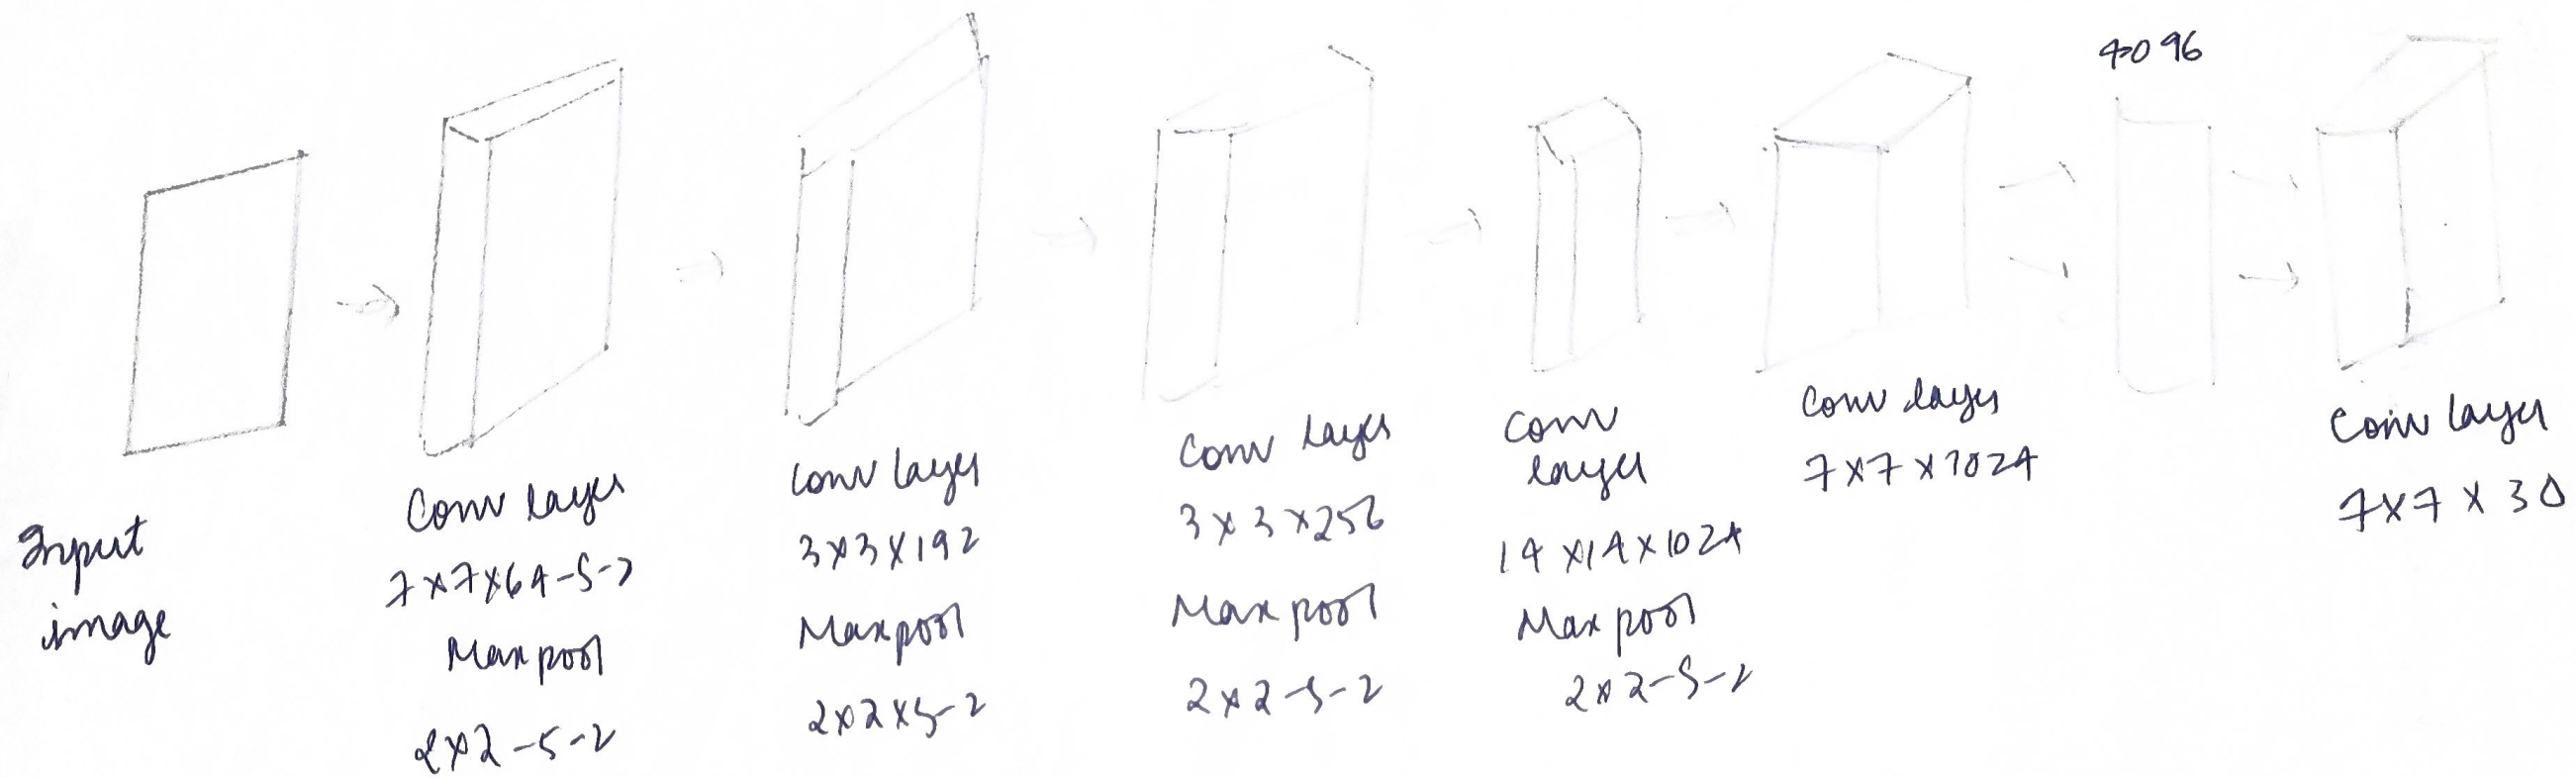 Input
image
Conv layer
7x7x64-s-2
Maxpool
2x2-s-2
Conv layer
3x3x192
Maxpool
2x2xs-2
Conv layer
3x3x256
Maxpool
2x2-s-2
Conv
layer
14x14x1024
Maxpool
2x2-s-2
Conv layer
7x7x1024
4096
Conv layer
7x7x30